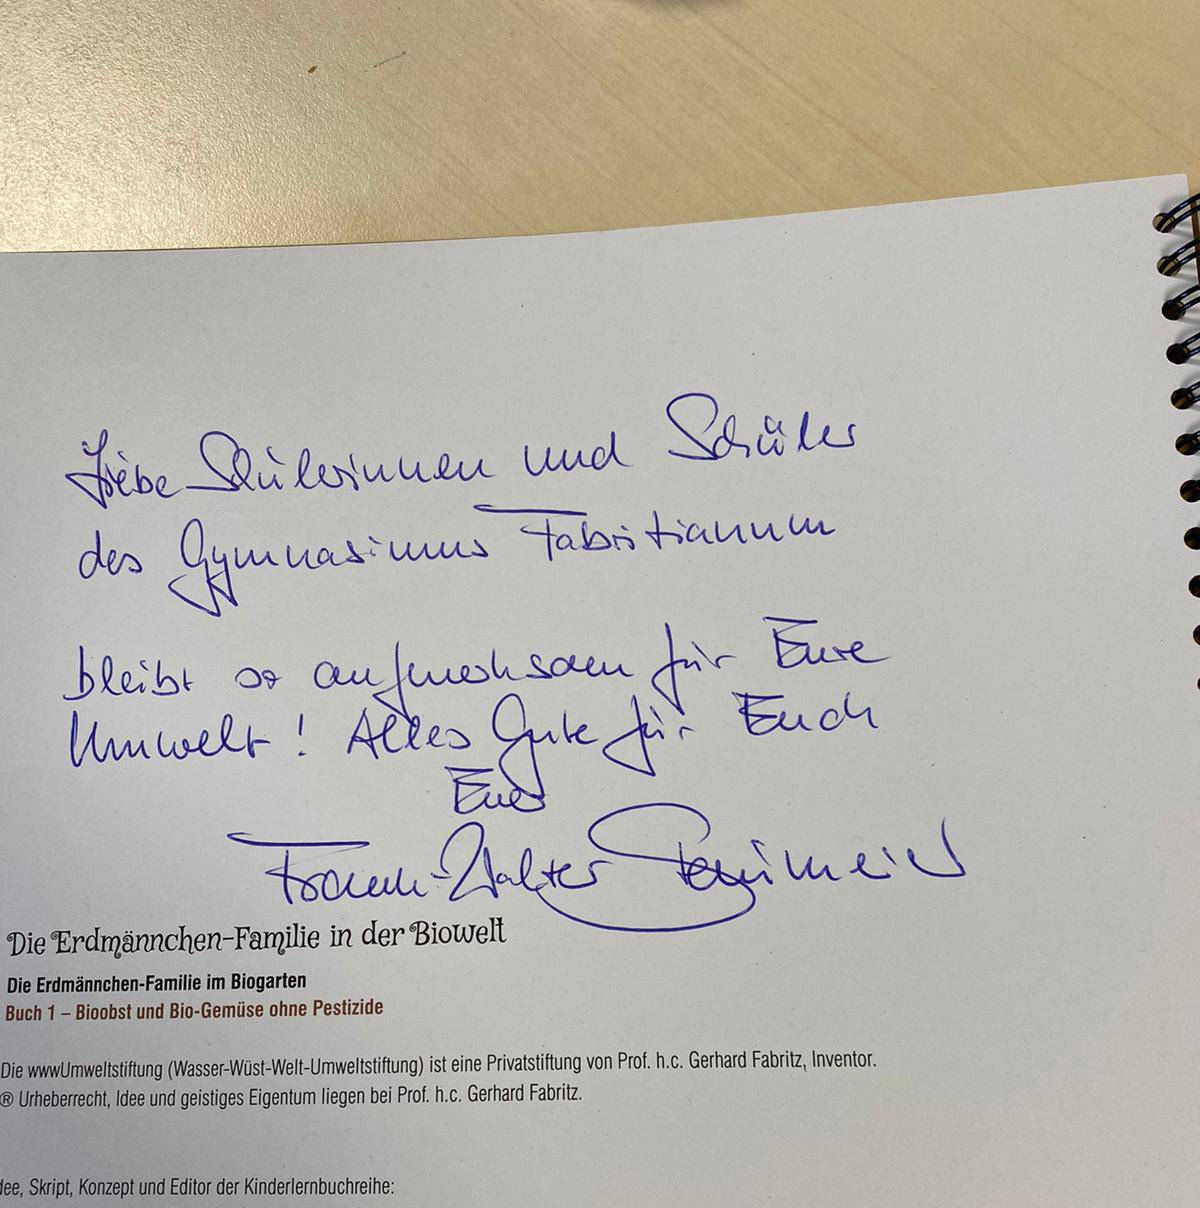 Liebe Schülerinnen und Schüler
des Gymnasiums Fabritianum
bleibt so aufmerksam für Eure
Umwelt! Alles Gute für Euch
Euer
Frank-Walter Steinmeier
Die Erdmännchen-Familie in der Biowelt
Die Erdmännchen-Familie im Biogarten
Buch 1 – Bioobst und Bio-Gemüse ohne Pestizide
Die wwwUmweltstiftung (Wasser-Wüst-Welt-Umweltstiftung) ist eine Privatstiftung von Prof. h.c. Gerhard Fabritz, Inventor.
® Urheberrecht, Idee und geistiges Eigentum liegen bei Prof. h.c. Gerhard Fabritz.
dee, Skript, Konzept und Editor der Kinderlernbuchreihe: